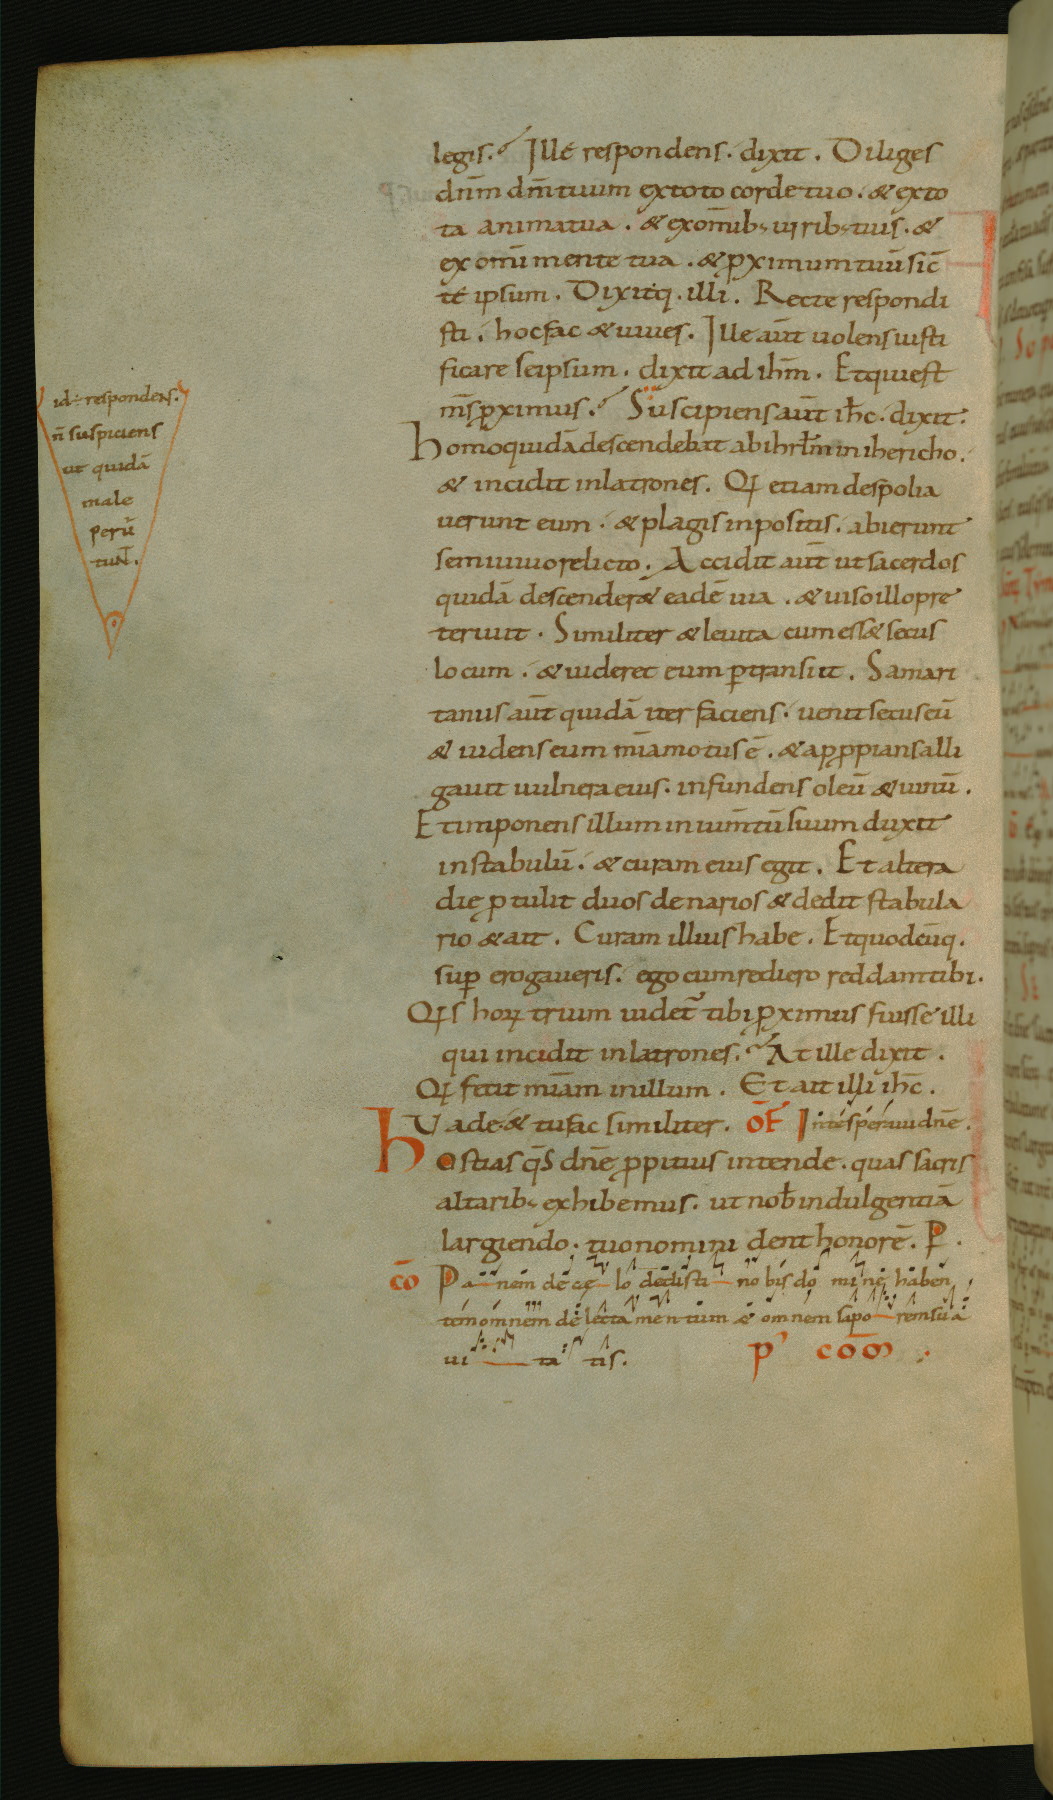 legis. Ille respondens. dixit. Diliges
dn̄m dm̄ tuum ex toto corde tuo. & ex to
ta anima tua. & ex om̄ib; uirib; tuis. &
ex omī mente tua. & ꝓximum tuū sic̄
té ipsum. Dixitq. illi. Recte respondi
sti. hoc fac & uiues. Ille aūt uolens iusti
ficare seipsum. dixit ad ihm̄. Et qui est
m̄s ꝓximus. Suscipiens aūt ihc̄. dixit.
Homo quidā descendebat ab ihrlm̄ in ihericho.
& incidit in latrones. Qi etiam despolia
uerunt eum. & plagis inpositis. abierunt
semiuiuo relicto. Accidit aūt ut sacerdos
quidā descender& eadē uia. & uiso illo pre
teriuit. Similiter & leuita cum ess& secus
locum. & uideret eum ꝑtransiit. Samari
tanus aūt quidā iter faciens. uenit secus eū
& uidens eum mīa motus ē. & apꝓpians alli
gauit uulnera eius. infundens oleū & uinū.
Et imponens illum in iumm̄tū suum duxit
in stabulū. & curam eius egit. Et altera
die ꝓtulit duos denarios & dedit stabula
rio & ait. Curam illius habe. Et quodcūq.
suꝑ erogaueris. ego cum rediero reddam tibi.
Qis hoꝝ trium uidet̄ tibi ꝓximus fuisse illi
qui incidit in latrones. At ille dixit.
Qi fecit mīam in illum. Et ait illi ihc̄.
Vade & tu fac similiter. OF̄ In te speraui dnē.
Hostias q̄s dnē ꝓpitius intende. quas sacris
altarib; exhibemus. ut nob̄ indulgentiā
largiendo. tuo nomini dent honorē. P.
CŌ Panem de cęlo dedisti nobis domine haben
tem omnem delectamentum & omnem saporem sua
uitatis. P' COM̄
id÷ respondens.
n̄ suspiciens
ut quidā
male
perū
tuNT.